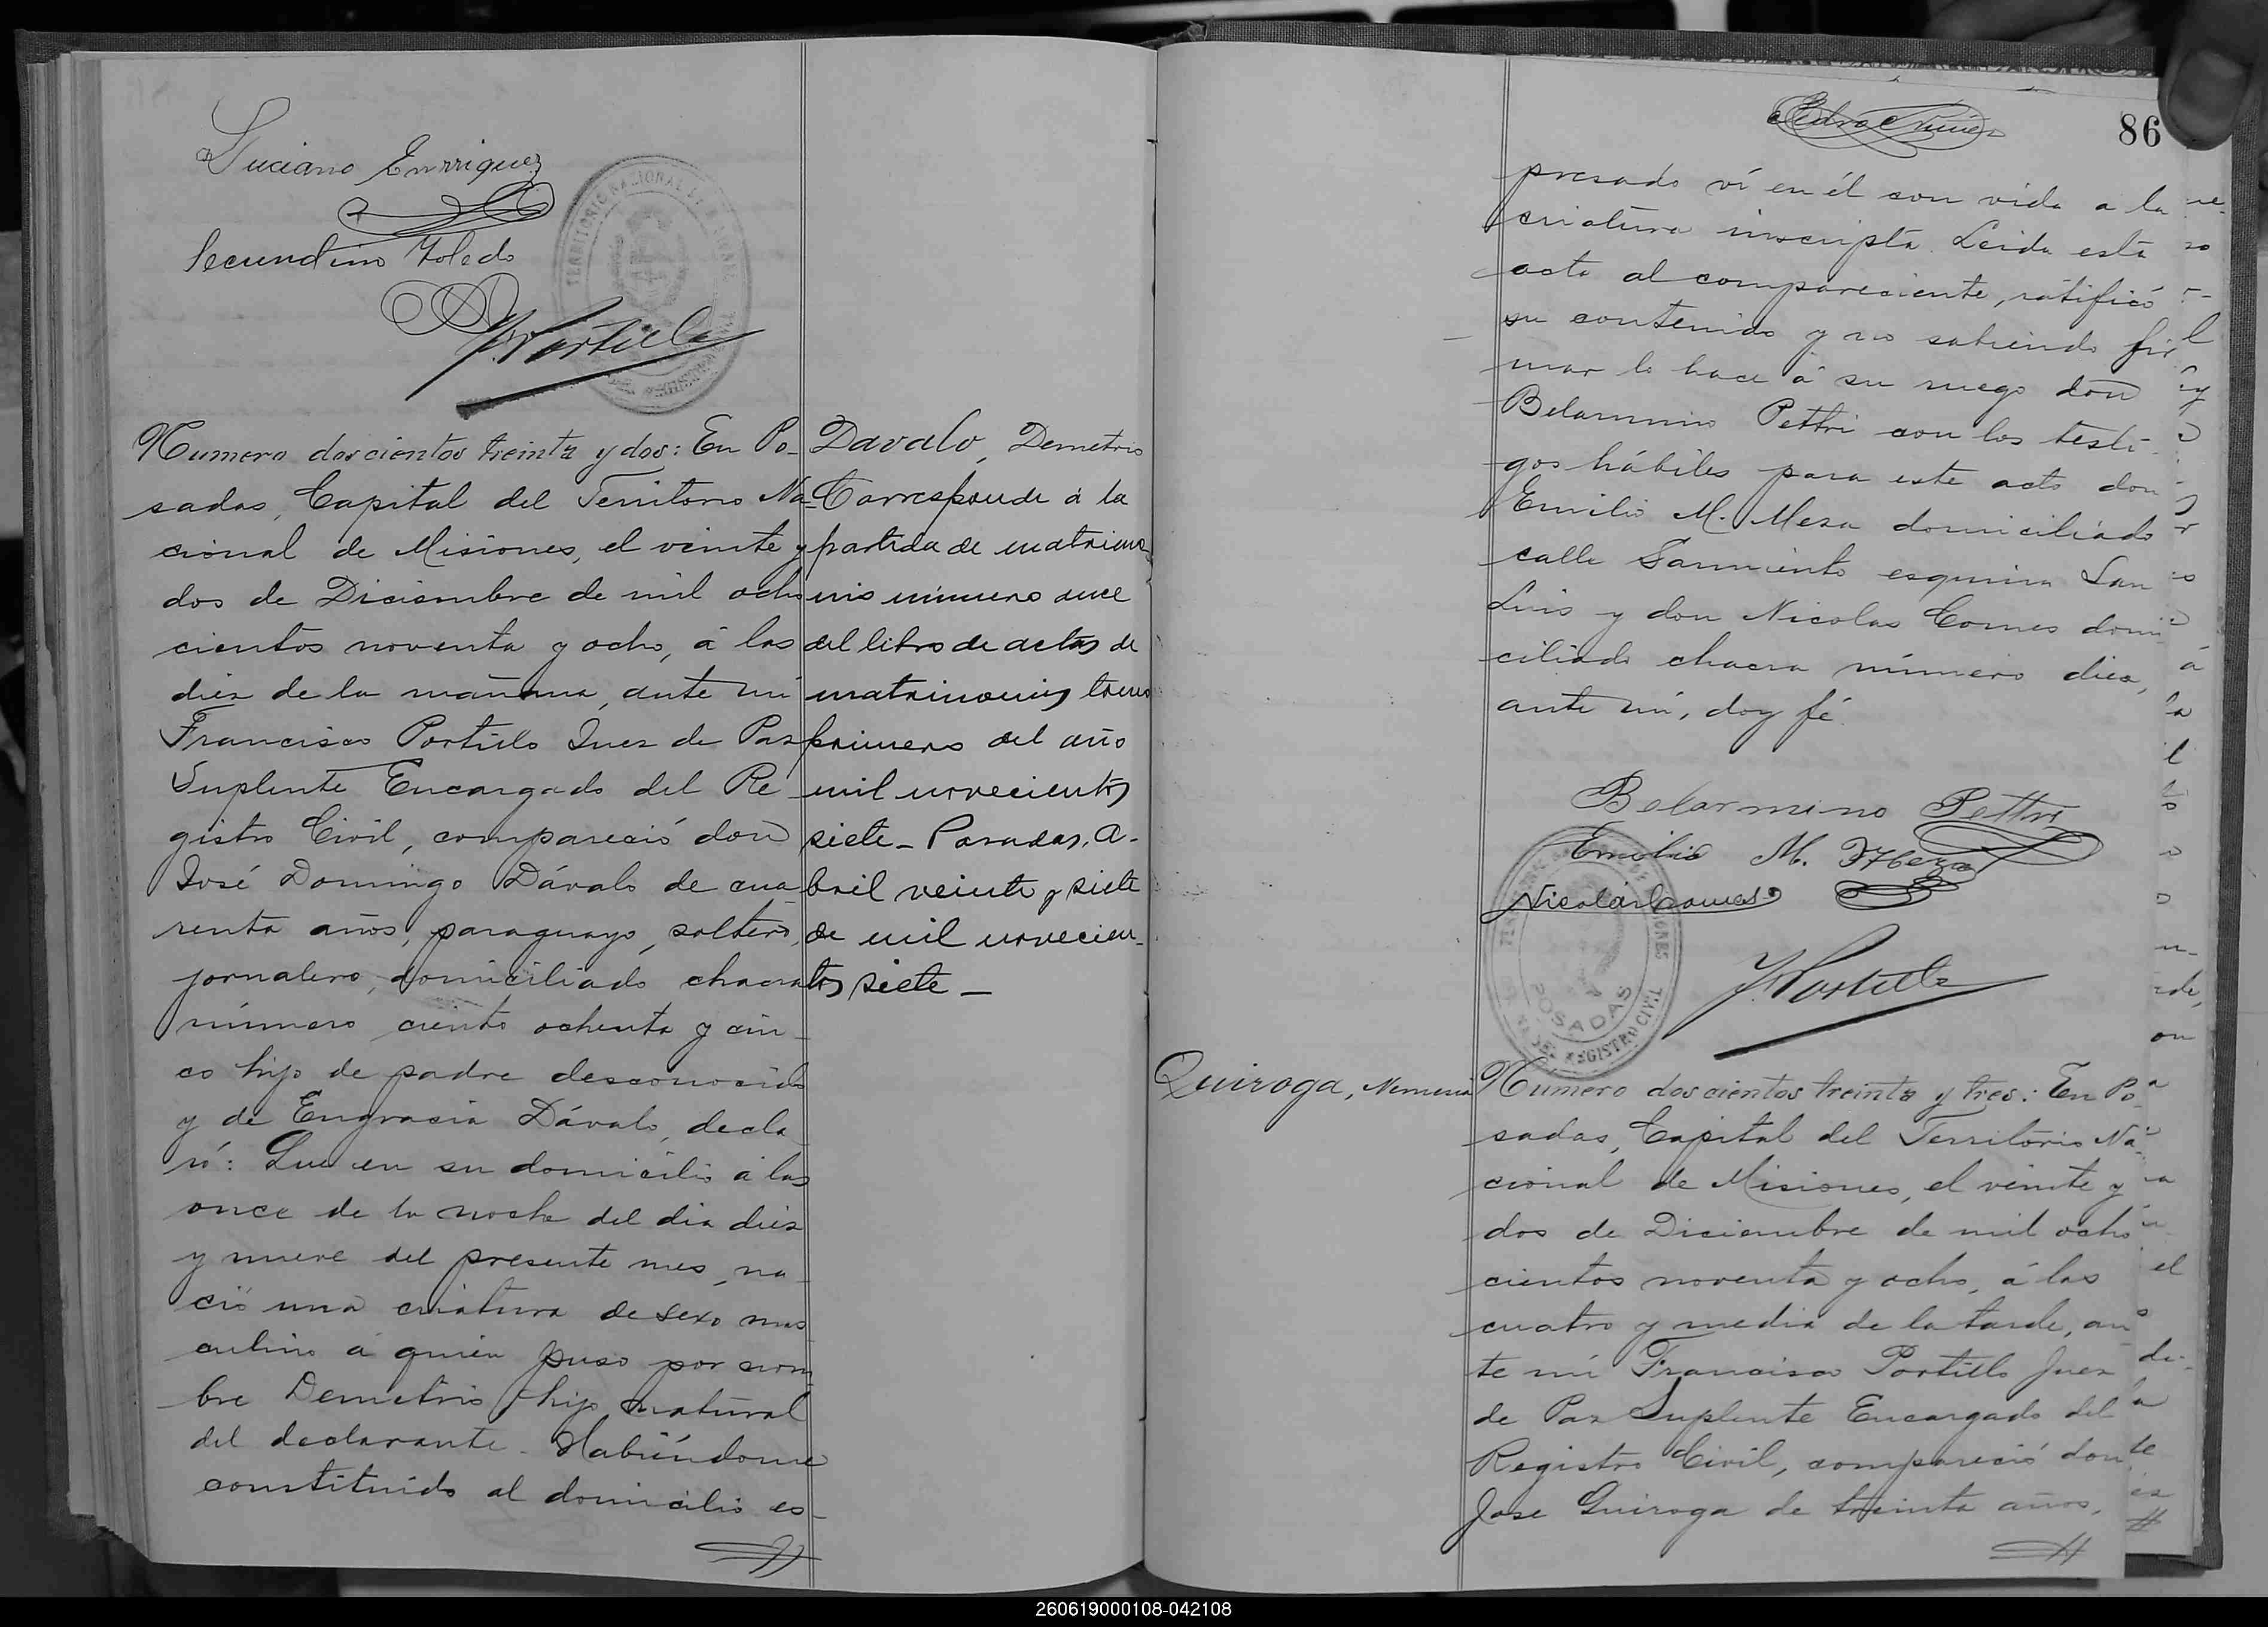 Luciano Enrriquez
Secundino Toledo
F. Portillo
TERRITORIO NACIONAL DE MISIONES
Numero doscientos treinta y dos: En Po-
sadas, Capital del Territorio Na-
cional de Misiones, el veinte y
dos de Diciembre de mil ocho
cientos noventa y ocho, á las
diez de la mañana, ante mí
Francisco Portillo Juez de Paz
Suplente Encargado del Re
gistro Civil, compareció don
José Domingo Dávalo de cua-
renta años, paraguayo, soltero,
jornalero, domiciliado chacra
número ciento ochenta y cin-
co hijo de padre desconocido
y de Engracia Dávalo, decla
ró: Que en su domicilio á las
once de la noche del dia diez
y nueve del presente mes, na-
ció una criatura de sexo mas
culino á quien puso por nom-
bre Demetrio hijo natural
del declarante. Habiéndome
constituido al domicilio es-
Davalo, Demetrio
Corresponde á la
partida de matrimo-
nio número once
del libro de actas de
matrimonios tomo
primero del año
mil novecientos
siete - Posadas, A-
bril veinte y siete
de mil novecien-
tos siete -
86
presado ví en él con vida a la
criatura inscripta. Leida esta
acta al compareciente, ratificó
su contenido y no sabiendo fir
mar lo hace á su ruego don
Belarmino Pettri con los testi-
gos hábiles para este acto don
Emilio M. Meza domiciliado
calle Sarmiento esquina San
Luis y don Nicolas Comes domi
ciliado chacra número diez,
ante mí, doy fé.
Belarmino Pettri
Emilio M. Meza
Nicolás Comes
F. Portillo
POSADAS
DEL REGISTRO CIVIL
Quiroga, Nemesia
Numero doscientos treinta y tres: En Po-
sadas, Capital del Territorio Na-
cional de Misiones, el veinte y
dos de Diciembre de mil ocho
cientos noventa y ocho, á las
cuatro y media de la tarde, an
te mí Francisco Portillo Juez
de Paz Suplente Encargado del
Registro Civil, compareció don
Jose Quiroga de treinta años,
260619000108-042108